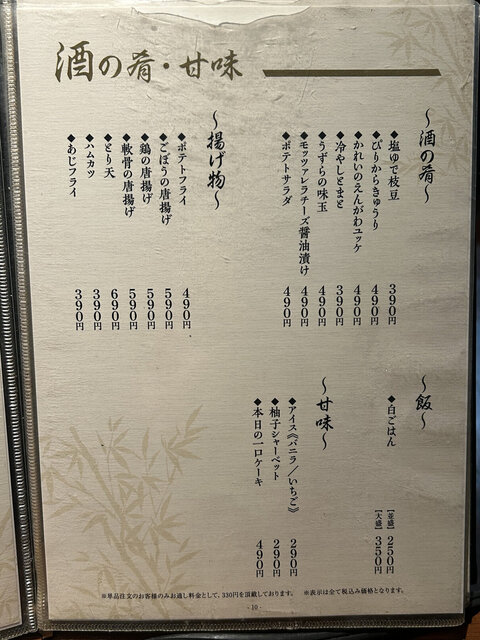 酒の肴・甘味
～酒の肴～
◆塩ゆで枝豆 390円
◆ぴりからきゅうり 490円
◆かれいのえんがわユッケ 490円
◆冷やしとまと 390円
◆うずらの味玉 490円
◆モッツァレラチーズ醤油漬け 490円
◆ポテトサラダ 490円
～揚げ物～
◆ポテトフライ 490円
◆ごぼうの唐揚げ 590円
◆鶏の唐揚げ 590円
◆軟骨の唐揚げ 590円
◆とり天 690円
◆ハムカツ 390円
◆あじフライ 390円
～飯～
◆白ごはん 【並盛】250円
【大盛】350円
～甘味～
◆アイス《バニラ／いちご》 290円
◆柚子シャーベット 290円
◆本日の一口ケーキ 490円
※単品注文のお客様のみお通し料金として、330円を頂戴しております。 ※表示は全て税込み価格となります。
- 10 -